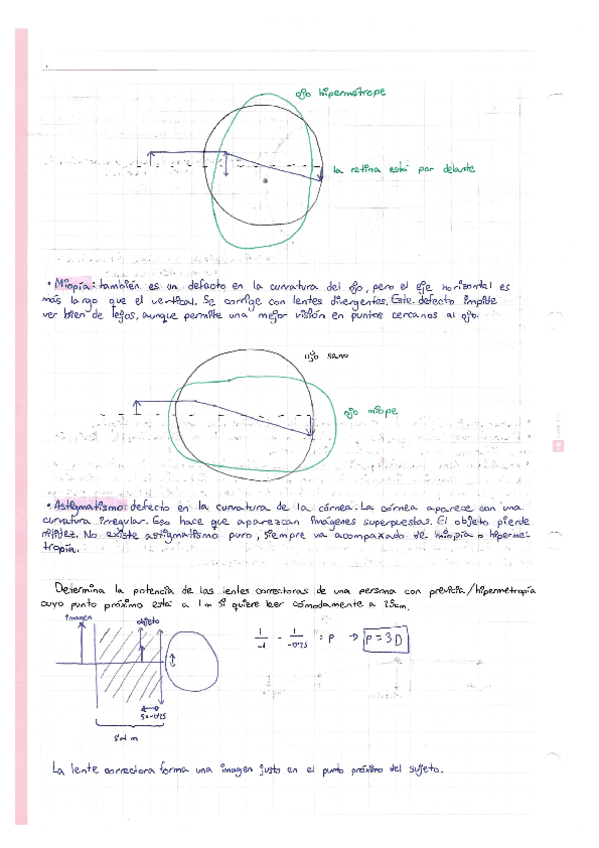 ojo hipermétrope
la retina está por delante
• Miopía: también es un defecto en la curvatura del ojo, pero el eje horizontal es
más largo que el vertical. Se corrige con lentes divergentes. Este defecto impide
ver bien de lejos, aunque permite una mejor visión en puntos cercanos al ojo.
ojo sano
ojo miope
• Astigmatismo: defecto en la curvatura de la córnea. La córnea aparece con una
curvatura irregular. Eso hace que aparezcan imágenes superpuestas. El objeto pierde
nitidez. No existe astigmatismo puro, siempre va acompañado de miopía o hiperme-
tropía.
Determina la potencia de las lentes correctoras de una persona con /hipermetropía
cuyo punto próximo está a 1m si quiere leer cómodamente a 25cm.
imagen
objeto
1/-1 - 1/-0'25 = P → P = 3D
s=-0'25
m
La lente correctora forma una imagen justo en el punto próximo del sujeto.